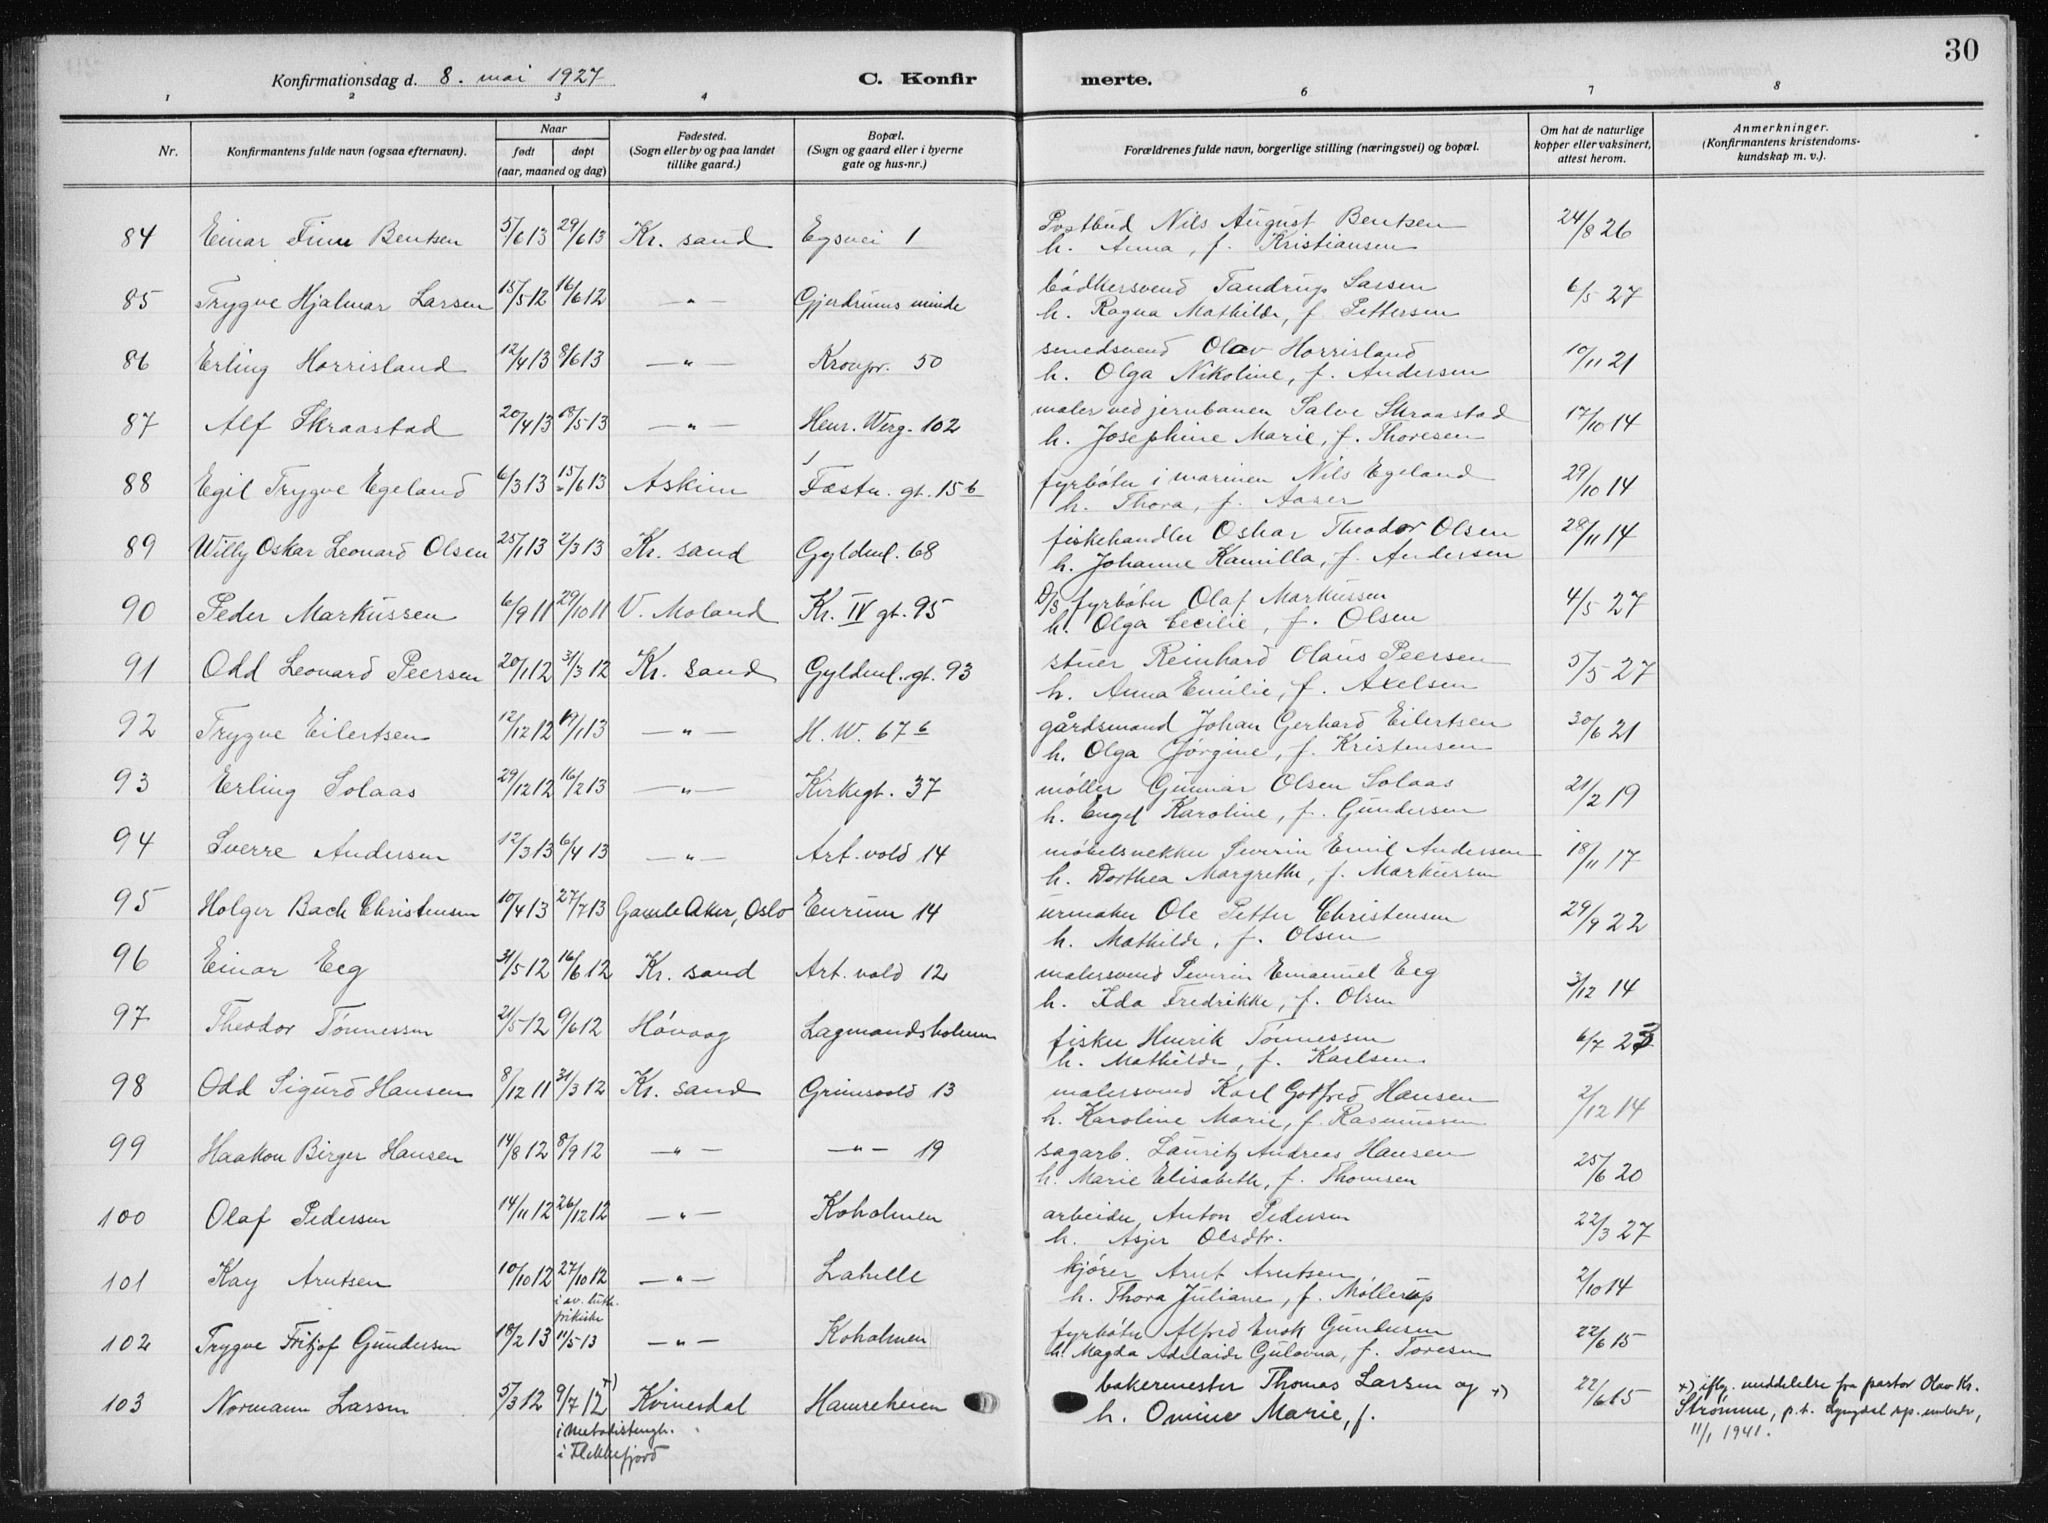 30
Konfirmationsdag d. 8. mai 1927 C. Konfirmerte.
1 2 3 4 5 6 7 8
Nr. Konfirmantens fulde navn (ogsaa efternavn). Naar født døpt (aar, maaned og dag) Fødested. (Sogn eller by og paa landet tillike gaard.) Bopæl. (Sogn og gaard eller i byerne gate og hus-nr.) Forældrenes fulde navn, borgerlige stilling (næringsvei) og bopæl. Om hat de naturlige kopper eller vaksinert, attest herom. Anmerkninger. (Konfirmantens kristendomskundskap m. v.)
84 Einar Finn Bentsen 5/6 13 29/6 13 Kr. sand Egsvei 1 Postbud Nils August Bentsen 24/8 26
h. Anna, f. Kristiansen
85 Trygve Hjalmar Larsen 15/5 12 16/6 12 —"— Gjerdrums minde bødkersvend Tandrup Larsen 6/5 27
h. Ragna Mathilde, f. Pettersen
86 Erling Horrisland 12/4 13 8/6 13 —"— Kronpr. 50 smedsvend Olav Horrisland 10/11 21
h. Olga Nikoline, f. Andersen
87 Alf Skraastad 20/4 13 18/5 13 —"— Henr. Werg. 102 maler ved jernbanen Salve Skraastad 17/10 14
h. Josephine Marie, f. Thoresen
88 Egil Trygve Egeland 6/3 13 15/6 13 Askim Fæstn. gt. 15 b fyrbøter i marinen Nils Egeland 29/10 14
h. Thora, f. Aaser
89 Willy Oskar Leonard Olsen 25/1 13 2/3 13 Kr. sand Gyldenl. 68 fiskehandler Oskar Theodor Olsen 28/11 14
h. Johanne Kamilla, f. Andersen
90 Peder Markussen 6/9 11 29/10 11 V. Moland Kr. IV gt. 95 D/S fyrbøter Olaf Markussen 4/5 27
h. Olga Cecilie, f. Olsen
91 Odd Leonard Peersen 20/1 12 31/3 12 Kr. sand Gyldenl. gt. 93 stuer Reinhard Olaus Peersen 5/5 27
h. Anna Emilie, f. Axelsen
92 Trygve Eilertsen 12/12 12 19/1 13 —"— H. W. 67 b gårdsmand Johan Gerhard Eilertsen 30/6 21
h. Olga Jørgine, f. Kristensen
93 Erling Solaas 29/12 12 16/2 13 —"— Kirkegt. 37 møller Gunnar Olsen Solaas 21/2 19
h. Engel Karoline, f. Gundersen
94 Sverre Andersen 12/3 13 6/4 13 —"— Art. vold 14 møbelsnekker Severin Emil Andersen 18/11 17
h. Dorthea Margrethe, f. Markussen
95 Holger Bach Christensen 10/4 13 27/7 13 Gamle Aker, Oslo Enrum 14 urmaker Ole Petter Christensen 29/9 22
h. Mathilde, f. Olsen
96 Einar Eeg 31/5 12 16/6 12 Kr. sand Art. vold 12 malersvend Severin Emanuel Eeg 3/12 14
h. Ida Fredrikke, f. Olsen
97 Theodor Tønnessen 21/5 12 9/6 12 Høvaag Lagmandsholmen fisker Henrik Tønnessen 6/7 23
h. Mathilde, f. Karlsen
98 Odd Sigurd Hansen 8/12 11 31/3 12 Kr. sand Grimsvold 13 malersvend Karl Gotfred Hansen 2/12 14
h. Karoline Marie, f. Rasmussen
99 Haakon Birger Hansen 14/8 12 8/9 12 —"— —"— 19 sagarb. Lauritz Andreas Hansen 25/6 20
h. Marie Elisabeth, f. Thomsen
100 Olaf Pedersen 14/11 12 26/12 12 —"— Koholmen arbeider Anton Pedersen 22/3 27
h. Asjer Olsdtr.
101 Kay Arntsen 10/10 12 27/10 12 —"— Lahelle kjører Arnt Arntsen 2/10 14
i av. luth. frikirke
h. Thora Juliane, f. Møllerup
102 Trygve Fritjof Gundersen 18/2 13 11/5 13 —"— Koholmen fyrbøter Alfred Enok Gundersen 22/6 15
h. Magda Adelaide Gulovna, f. Toresen
103 Normann Larsen 5/3 12 9/7 12 +) Kvinesdal Hamreheien bakermester Thomas Larsen og +) 22/6 15
i metodistmgh. i Flekkefjord
h. Omine Marie, f.
+) iflg. meddelelse fra pastor Olav Kr.
Strømme, p. t. Lyngdal sp. embede,
11/1 1941.